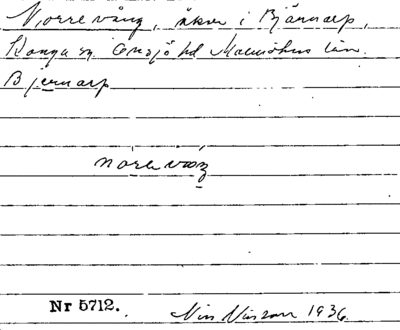 Norrevång, åker i Bjärnarp,
Konga sn Onsjö hd Malmöhus län.
Bjernarp
Nr 5712.
Nils Nilsson 1936.